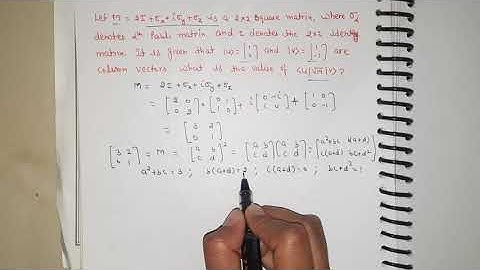 Let m = 2I + σx + iσy + σz is a 2×2 square matrix, where σi
denotes ith Pauli matrix and I denotes the 2×2 identity
matrix. It is given that |u> = [1 i] and |v> = [1 -1] are
column vectors what is the value of <u|√m|v>?
m = 2I + σx + iσy + σz
= [2 0 0 2] + [0 1 1 0] + i [0 -i i 0] + [1 0 0 -1]
= [3 2 0 1]
[3 2 0 1] = m = [a b c d]² = [a b c d] [a b c d] = [a²+bc b(a+d) c(a+d) bc+d²]
a²+bc = 3 ; b(a+d) = 2 ; c(a+d) = 0 ; bc+d² = 1